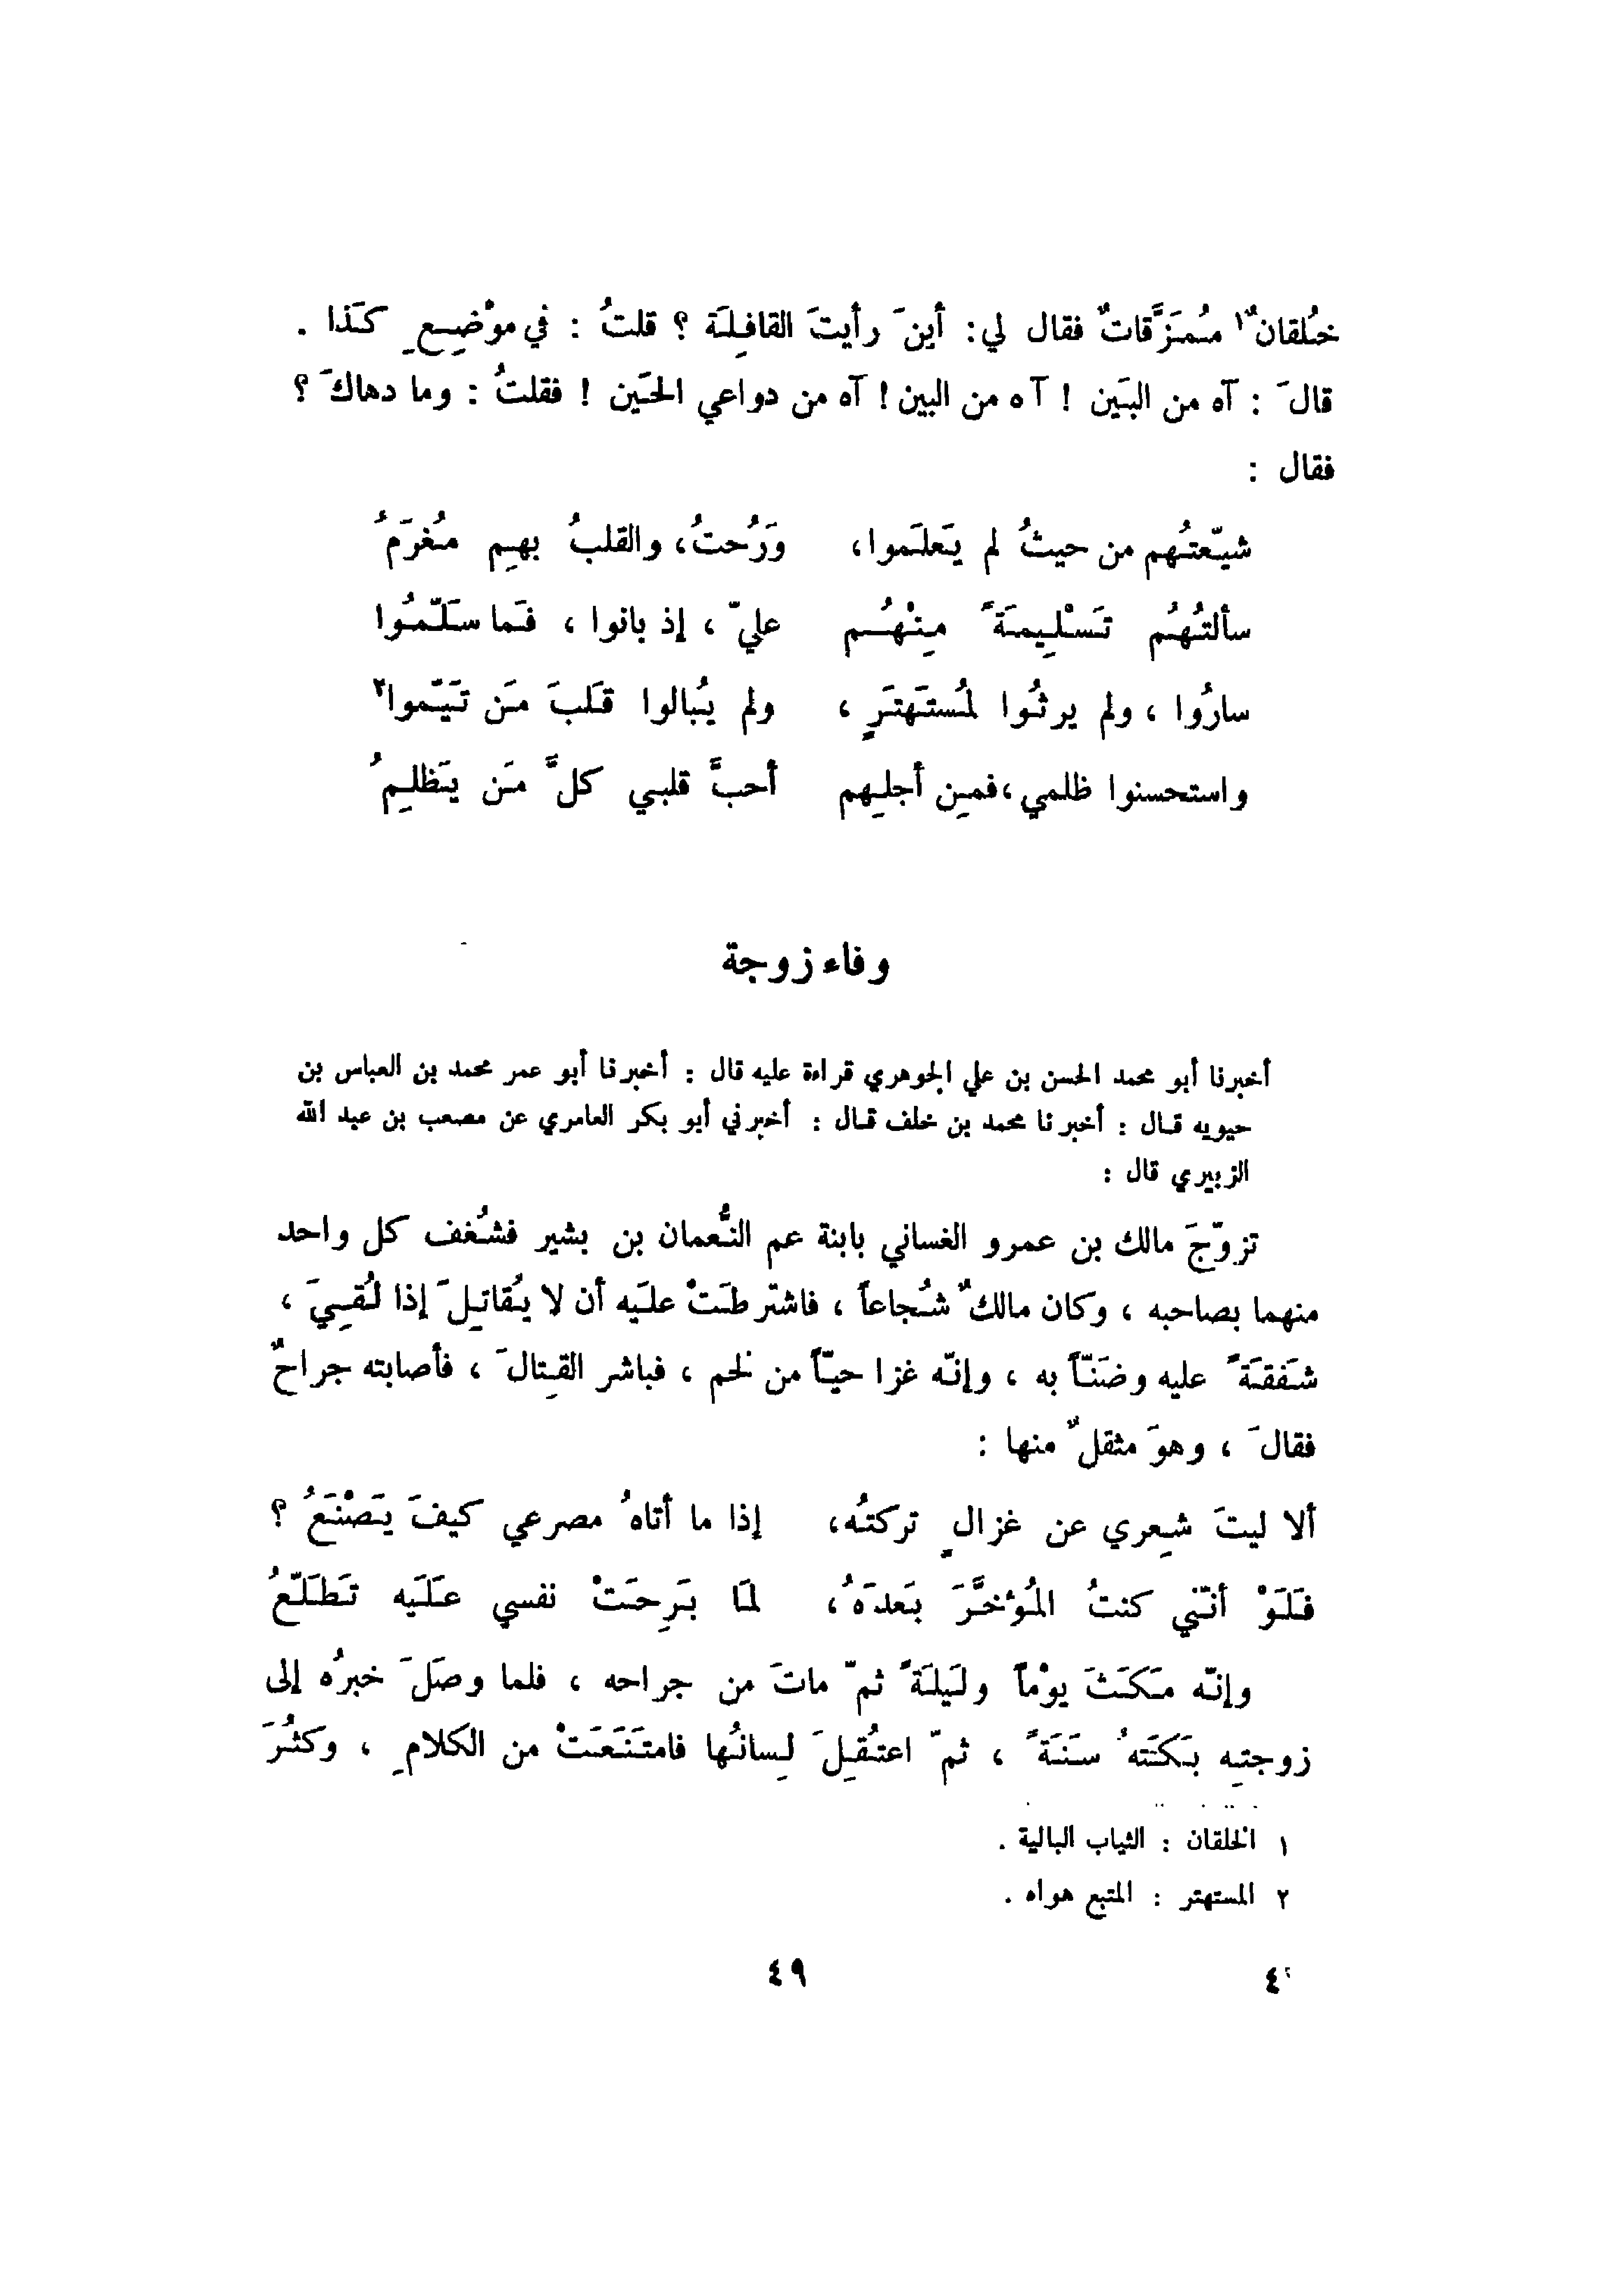 خُلقانٌ١ مُمَزَّقاتٌ فقال لي: أينَ رأيتَ القافِلَة ؟ قلتُ : في موْضِعٍ كَذا .
قالَ : آه من البَين ! آه من البين ! آه من دواعي الحَين ! فقلتُ : وما دهاكَ ؟
فقال :
شيّعتُهم من حيثُ لم يَعلَموا، وَرُحتُ، والقلبُ بهِم مُغرَمُ
سألتُهُم تَسْلِيمَةً مِنْهُم عليّ ، إذ بانوا ، فَما سَلّمُوا
سارُوا ، ولم يرثُوا لمُستَهتَرٍ ، ولم يُبالوا قَلبَ مَن تَيّموا٢
واستحسنوا ظلمي ،فمِن أجلِهم أحبَّ قلبي كلَّ مَن يَظلِمُ
وفاء زوجة
أخبرنا أبو محمد الحسن بن علي الجوهري قراءة عليه قال : أخبرنا أبو عمر محمد بن العباس بن
حيويه قال : أخبرنا محمد بن خلف قال : أخبرني أبو بكر العامري عن مصعب بن عبد الله
الزبيري قال :
تزوّجَ مالك بن عمرو الغساني بابنة عم النُّعمان بن بشير فشُغف كل واحد
منهما بصاحبه ، وكان مالكٌ شُجاعاً ، فاشترطَتْ علَيه أن لا يُقاتِلَ إذا لُقِيَ ،
شَفقَةً عليه وضَنّاً به ، وإنّه غزا حيّاً من لخم ، فباشر القِتالَ ، فأصابته جراحٌ
فقالَ ، وهوَ مثقلٌ منها :
ألا ليتَ شِعري عن غزالٍ تركتُه، إذا ما أتاهُ مصرعي كيفَ يَصْنَعُ ؟
فَلَوْ أنّني كنتُ المُؤخَّرَ بَعدَهُ، لمَا بَرِحَتْ نفسي عَلَيه تَطَلّعُ
وإنّه مَكَثَ يوْماً ولَيلَةً ثمّ ماتَ من جراحه ، فلما وصَلَ خبرُه إلى
زوجتِه بَكَتَهُ سَنَةً ، ثمّ اعتُقِلَ لِسانُها فامتَنَعَتْ من الكلامِ ، وكثُرَ
١ الخلقان : الثياب البالية .
٢ المستهتر : المتبع هواه .
٤٩
٤